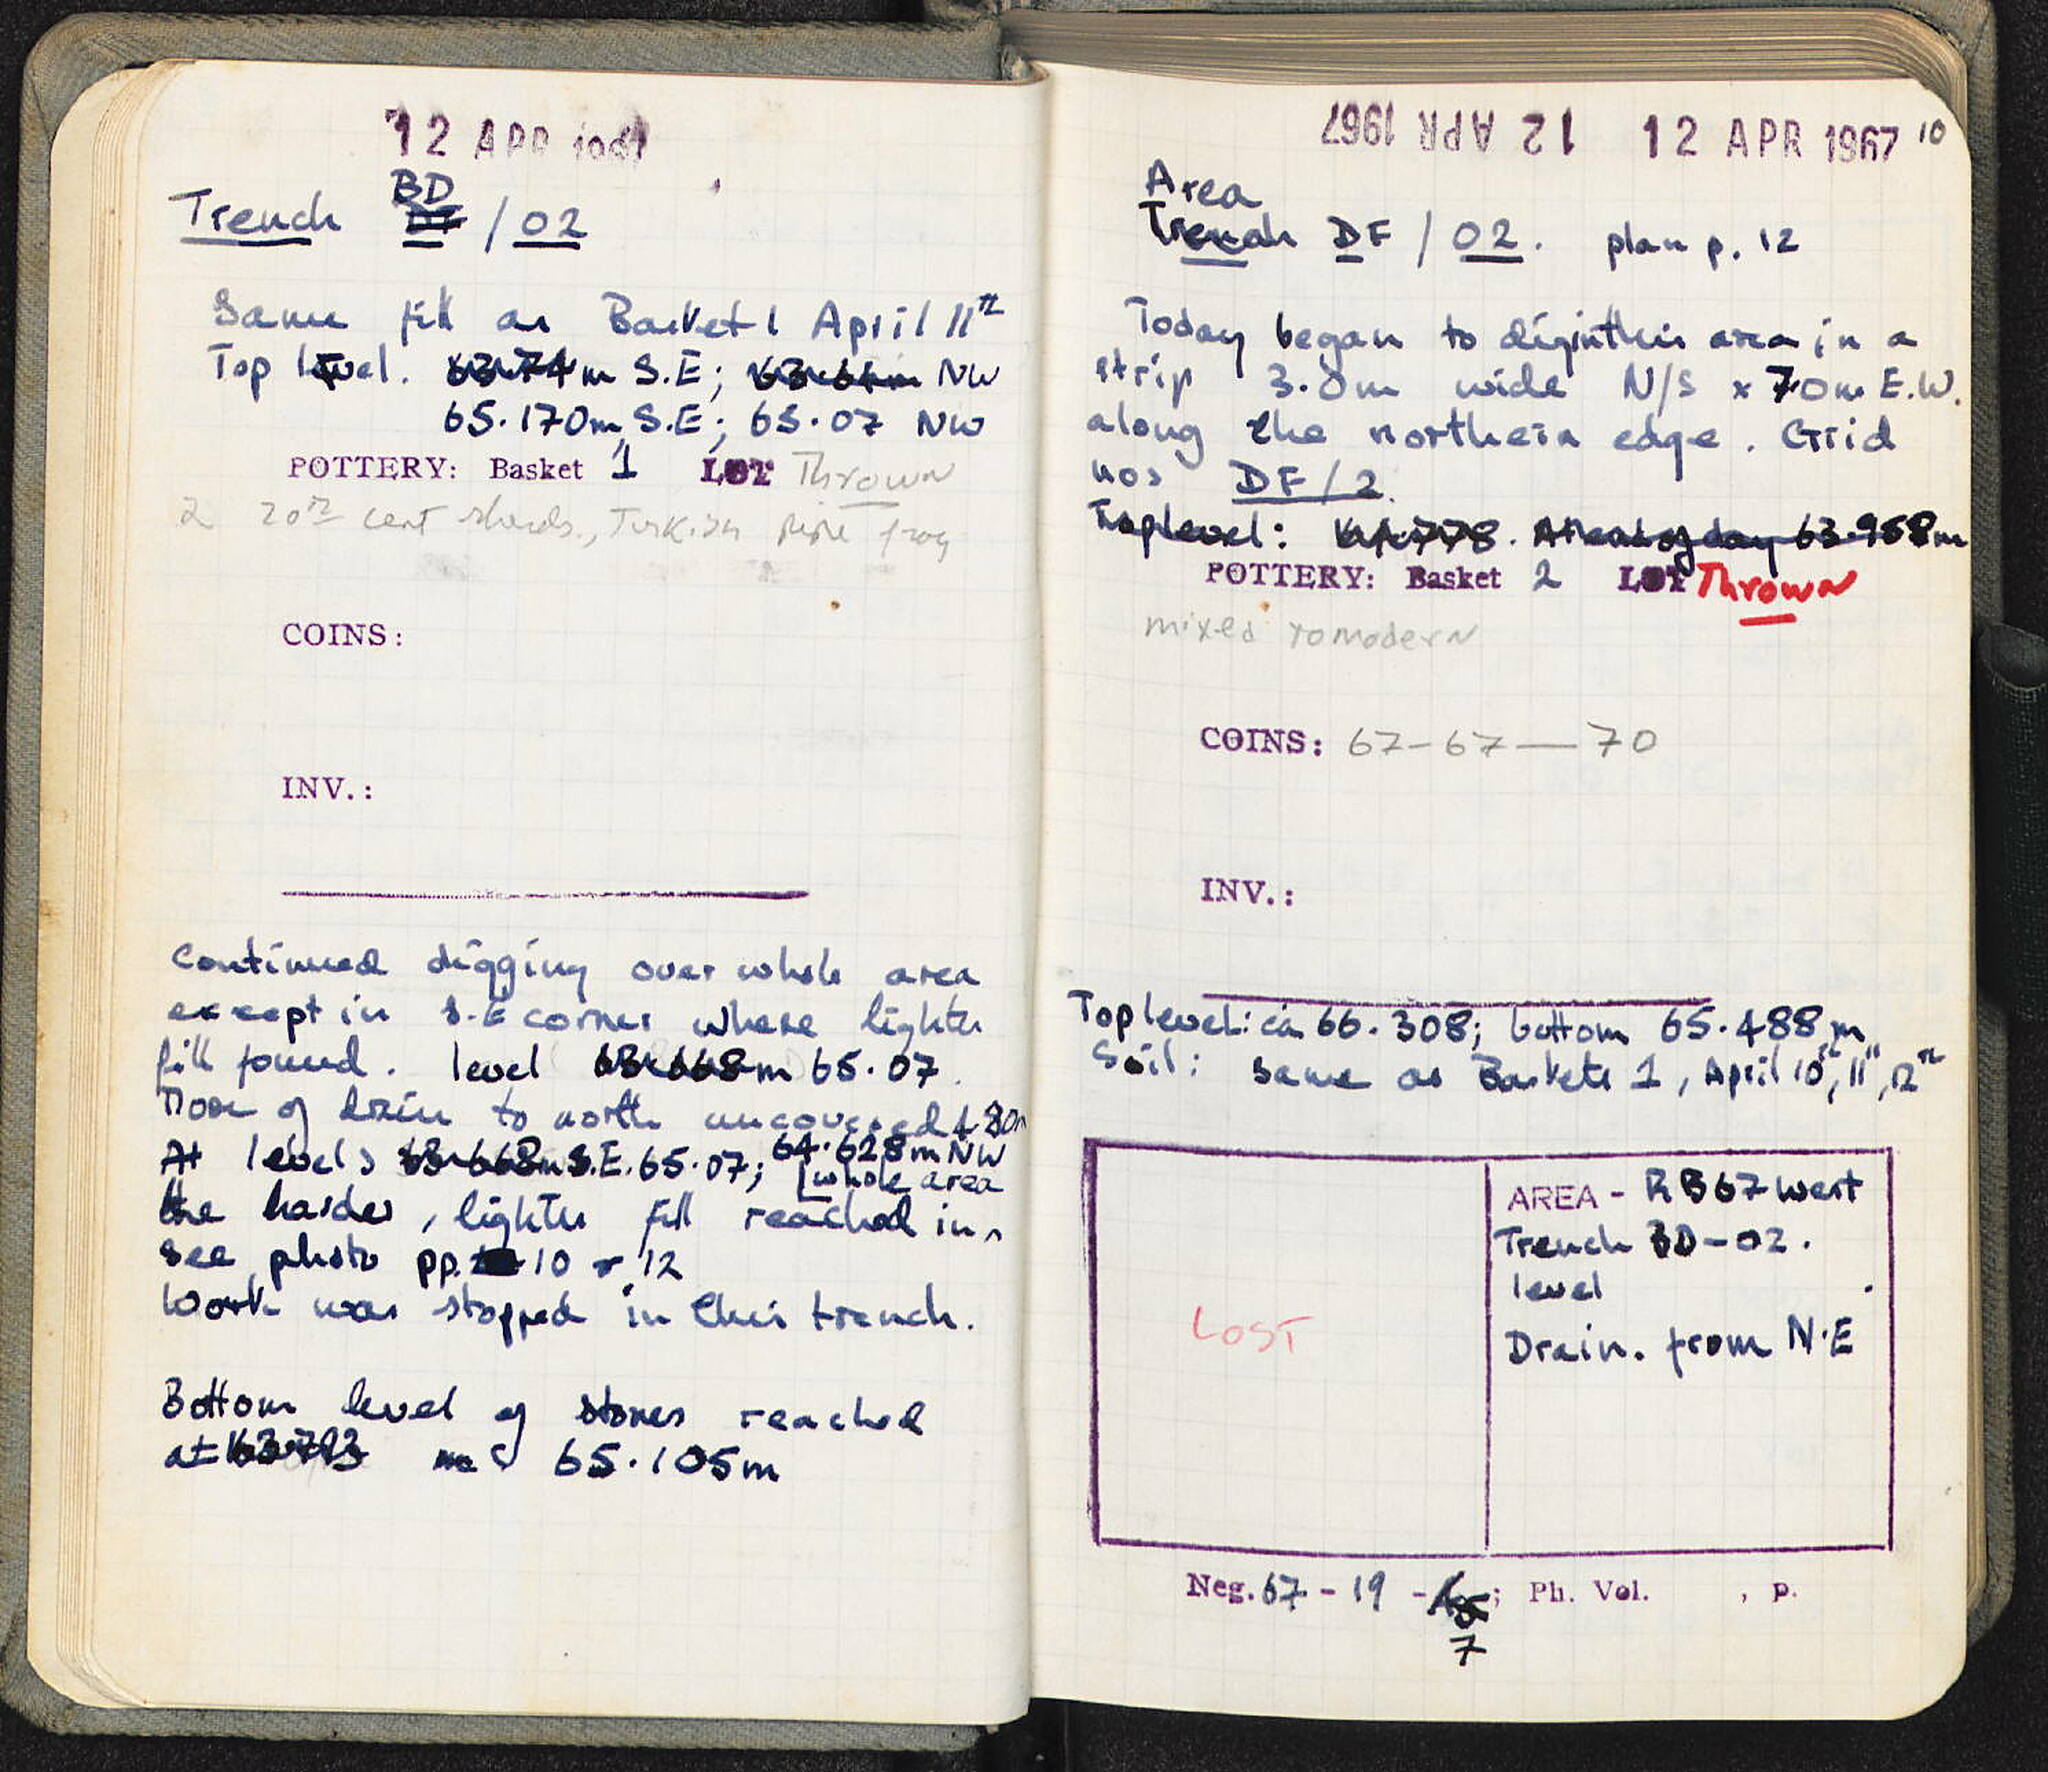 12 APR 1967
BD
Trench / 02
Same fill as Basket 1 April 11th
Top level. 63.74m S.E; 63.64m NW
65.170m S.E; 65.07 NW
POTTERY: Basket 1 LOT Thrown
2 20th cent sherds., Turkish pipe frag
COINS:
INV.:
Continued digging over whole area
except in S.E corner where lighter
fill found. level 63.668m 65.07.
More of drain to north uncovered
At levels 63.668m S.E. 65.07; 64.628m NW
the harder, lighter fill reached in whole area
See photo pp. 10 + 12
Work was stopped in this trench.
Bottom level of stones reached
at 63.793 m 65.105m
12 APR 1967 12 APR 1967 10
Area
Trench DF / 02. plan p. 12
Today began to dig in this area in a
strip 3.0m wide N/S x 7.0m E.W.
along the northern edge. Grid
nos DF/2.
Top level: . At end of day 63.958m
POTTERY: Basket 2 LOT Thrown
mixed to modern
COINS: 67-67—70
INV.:
Top level: ca 66.308; bottom 65.488m
Soil: same as Baskets 1, April 10th, 11th, 12th
LOST
AREA - RB67 West
Trench BD-02.
level
Drain. from N.E
Neg. 67 - 19 - ; Ph. Vol. , p.
7